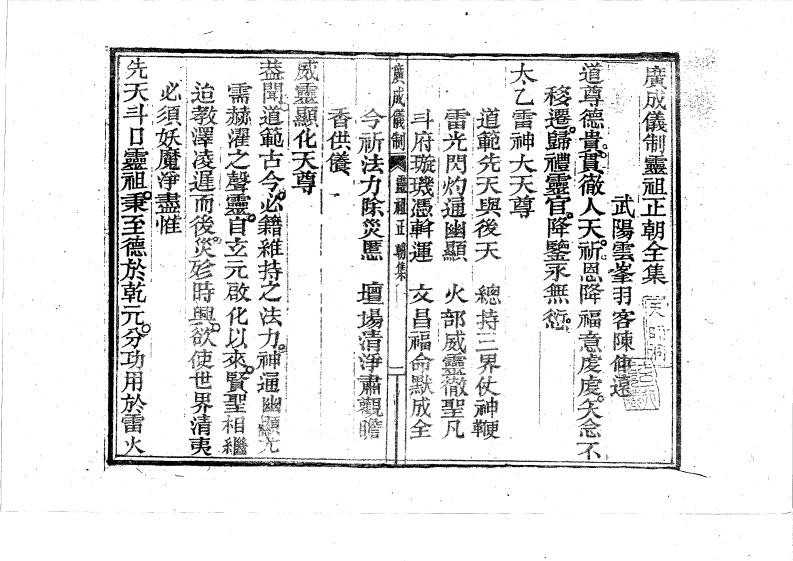 廣成儀制靈祖正朝全集
武陽雲峯羽客陳仲遠
道尊德貴。貫徹人天。祈恩降福意虔虔。矢念不
移遷。歸禮靈官。降鑒永無愆。
太乙雷神大天尊
道範先天與後天　總持三界仗神鞭
雷光閃灼通幽顯　火部威靈徹聖凡
斗府璇璣憑斡運　文昌福命默成全
今祈法力除災慝　壇場清淨肅觀瞻
香供儀
廣成儀制　靈祖正朝集　一
威靈顯化天尊
葢聞道範古今。必籍維持之法力。神通幽顯。尤
需赫濯之聲靈。自玄元啟化以來。賢聖相繼
迨教澤凌遲而後。災殄時興。欲使世界清夷
必須妖魔淨盡。惟
先天斗口靈祖。秉至德於乾元。分功用於雷火